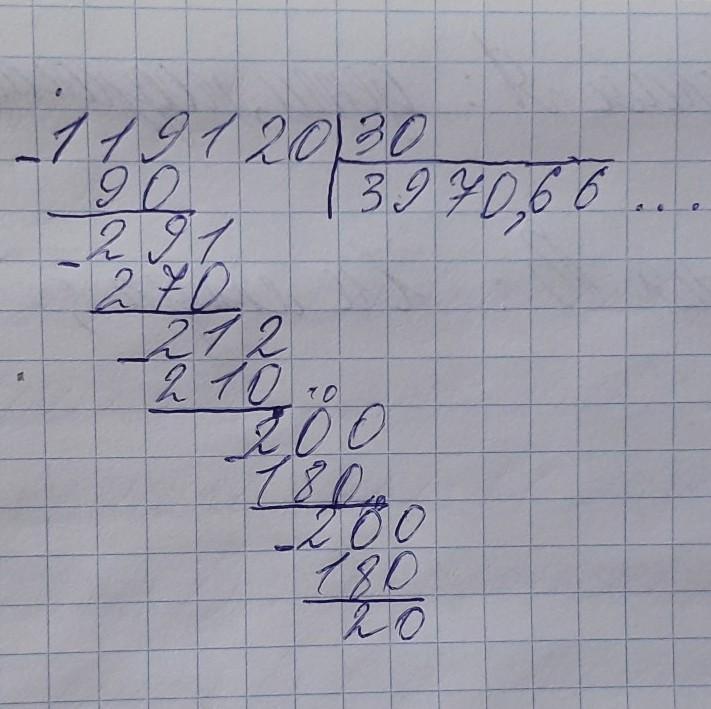 -119120 | 30
90 3970,66...
-291
270
-212
210 10
-200
180 10
-200
180
20